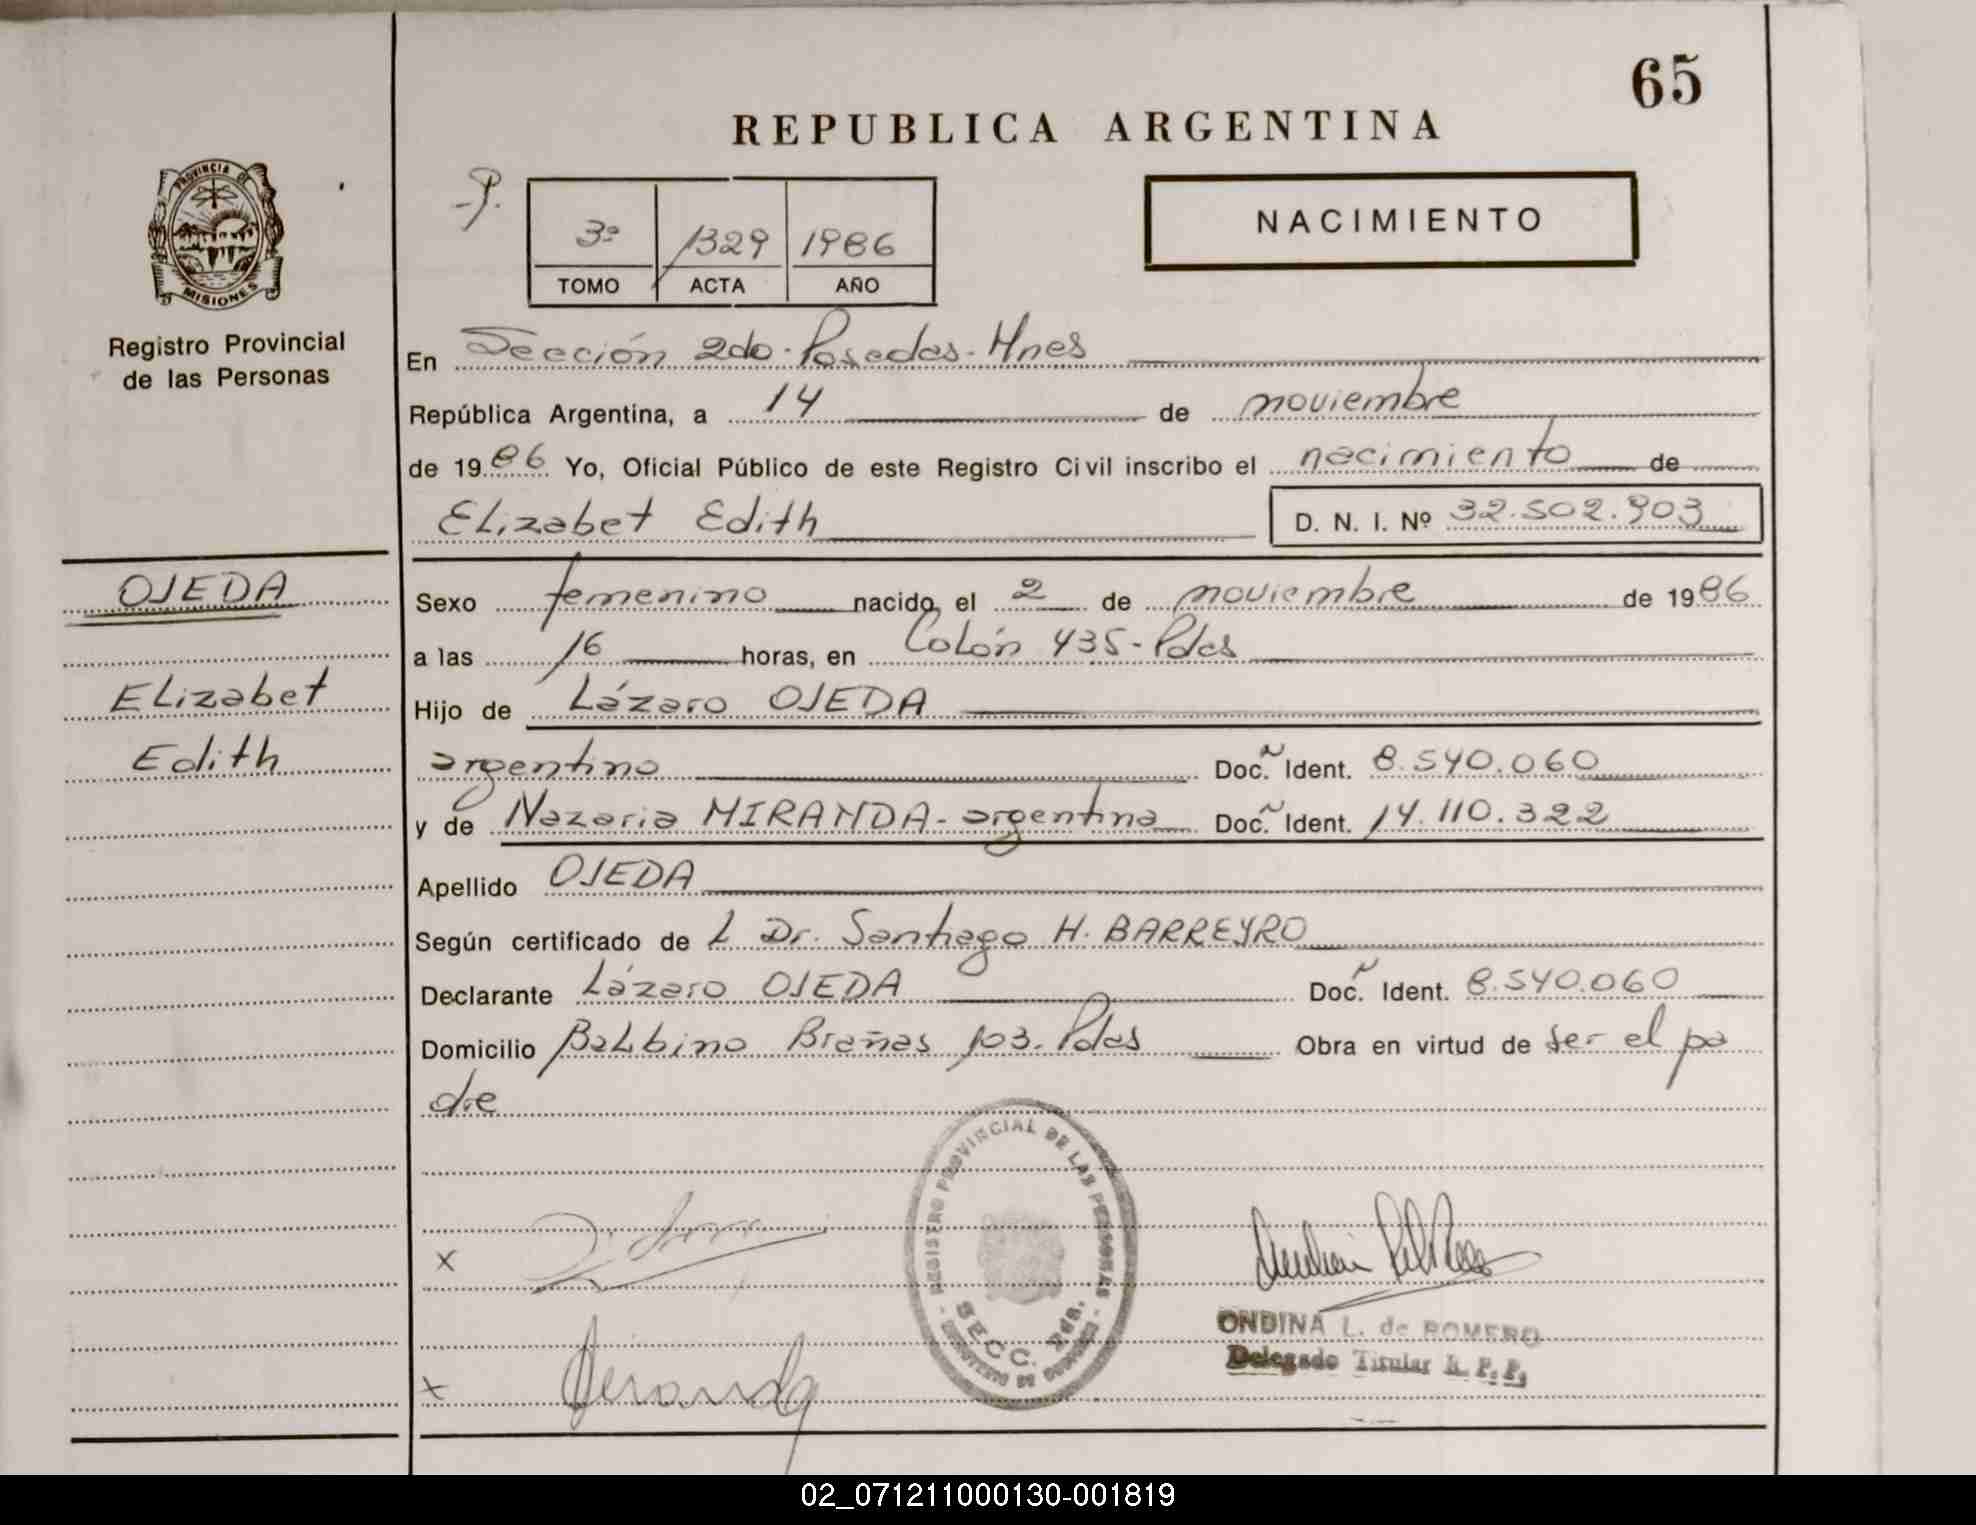 65
REPUBLICA ARGENTINA
PROVINCIA DE
MISIONES
Registro Provincial
de las Personas
3º 1329 1986
TOMO ACTA AÑO
NACIMIENTO
En Sección 2do - Posadas - Mnes
República Argentina, a 14 de noviembre
de 1986 Yo, Oficial Público de este Registro Civil inscribo el nacimiento de
Elizabet Edith D. N. I. Nº 32.502.903
OJEDA
Elizabet
Edith
Sexo femenino nacido el 2 de noviembre de 1986
a las 16 horas, en Colón 435 - Pdas
Hijo de Lázaro OJEDA
argentino Doc. Ident. 8.540.060
y de Nazaria MIRANDA - argentina Doc. Ident. 14.110.322
Apellido OJEDA
Según certificado de L Dr. Santiago H. BARREYRO
Declarante Lázaro OJEDA Doc. Ident. 8.540.060
Domicilio Balbino Brañas 103. Pdas Obra en virtud de ser el pa
dre
REGISTRO PROVINCIAL DE LAS PERSONAS
SECC. 2da.
x
x Miranda
ONDINA L. de ROMERO
Delegado Titular R. P. P.
02_071211000130-001819